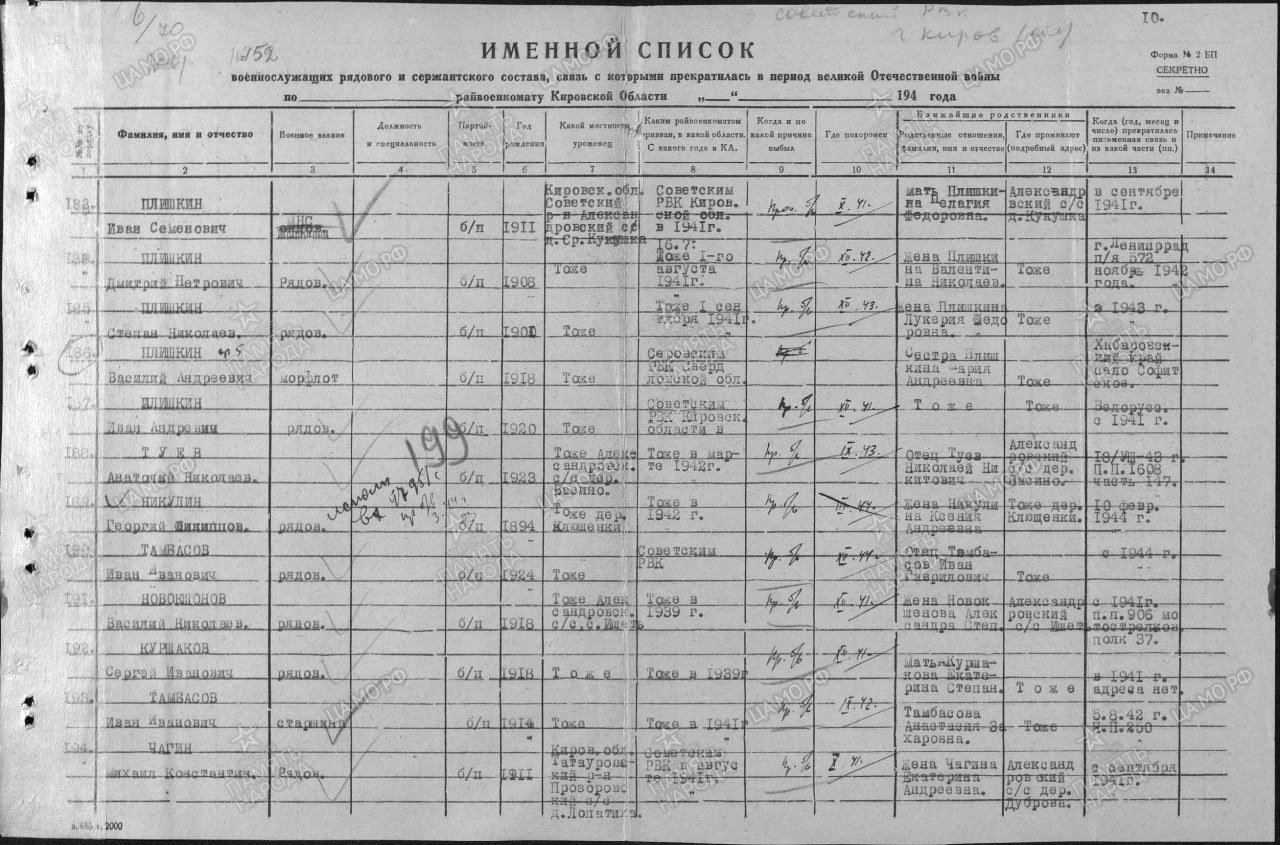 6/70
№152
советский РВК
г Киров
10.
ИМЕННОЙ СПИСОК
Форма № 2 БП
военнослужащих рядового и сержантского состава, связь с которыми прекратилась в период великой Отечественной войны
СЕКРЕТНО
по райвоенкомату Кировской Области „ “ 194 года
экз №
№№ по порядку
Фамилия, имя и отчество
Военное звание
Должность и специальность
Партийность
Год рождения
Какой местности уроженец
Каким райвоенкоматом призван, в какой области. С какого года в КА.
Когда и по какой причине выбыл
Где похоронен
Ближайшие родственники
Родственные отношения, фамилия, имя и отчество
Где проживают (подробный адрес)
Когда (год, месяц и число) прекратилась письменная связь и из какой части (пп.)
Примечание
1 2 3 4 5 6 7 8 9 10 11 12 13 14
183. ПЛИШКИН
Иван Семенович
МНС
б/п 1911
Кировск.обл.
Советский
р-н Алексан
дровский с/с
д.Ср.Кукушка
Советским
РВК Киров.
ской обл.
в 1941г.
Проп. б/в X.41.
мать Плишки-
на Пелагия
Федоровна.
Александр
вский с/с
д.Кукушка
в сентябре
1941г.
ПЛИШКИН
Дмитрий Петрович Рядов. б/п 1908 Тоже
16.7:
Тоже 1-го
августа
1941г.
Пр. б/в XII.42.
Жена Плишки
на Валенти-
на Николаев.
Тоже
г.Ленинград
п/я 572
ноябрь 1942
года.
ПЛИШКИН
Степан Николаев. рядов. б/п 1901 Тоже
Тоже 1 сен
тября 1941г.
Пр. б/в XII.43.
жена Плишкина
Лукерия Федо
ровна.
Тоже
в 1943 г.
186. ПЛИШКИН
Василий Андреевич морфлот б/п 1918 Тоже
Серовским
РВК Сверд
ловской обл.
Сестра Плиш
кина Мария
Андреевна
Тоже
Хабаровс-
кий край
село Софий
ское.
187. ПЛИШКИН
Иван Андревич рядов. б/п 1920 Тоже
Советским
РВК Кировск.
области в
Пр. б/в XII.41.
Тоже Тоже
Белорусс.
с 1941 г.
188. ТУЕВ
Анатолий Николаев. б/п 1923
199
Тоже Алекс
сандровск.
с/с дер.
Васино.
Тоже в мар-
те 1942г.
Пр. б/в IX.43.
Отец Туев
Николаей Ни
китович
Александ
ровский
с/с дер.
Васино.
18/УШ-43 г.
П.П.1608
часть 147.
НИКУЛИН
Георгий Филиппов. рядов. б/п 1894
Тоже дер.
Клюшенки
Тоже в
1942 г.
Пр. б/в
Жена Никули
на Ксения
Андреевна
Тоже дер.
Клющенки.
10 февр.
1944 г.
190. ТАМБАСОВ
Иван Иванович рядов. б/п 1924 Тоже
Советским
РВК
Пр. б/в XII.44.
Отец Тамба-
сов Иван
Гаврилович
Тоже
с 1944 г.
191. НОВОКШОНОВ
Василий Николаев. рядов. б/п 1918
Тоже Алек
сандровск.
с/с,с.Ишеть
Тоже в
1939 г.
Пр. б/в XII.41.
Жена Новок
шенова Алек
сандра Степ.
Александр
ровский
с/с Ишеть
с 1941г.
п.п.906 мо
тострелков.
полк 37.
192. КУРШАКОВ
Сергей Иванович рядов. б/п 1918 Тоже Тоже в 1939г
Пр. б/в XII.41.
Мать Курша-
кова Екате-
рина Степан.
Тоже
в 1941 г.
адреса нет.
193. ТАМБАСОВ
Иван Иванович старшина б/п 1914 Тоже Тоже в 1941г
Пр. б/в IX.42.
Тамбасова
Анастасия За
харовна.
Тоже
5.8.42 г.
П.П.250
194. ЧАГИН
Михаил Константин. Рядов. б/п 1911
Киров.обл.
Татауровс-
кий р-н
Прозоровс
кий с/с
д.Лопатиха.
Советским
РВК в авгус
те 1941г.
Пр. б/в X.41.
Жена Чагина
Екатерина
Андреевна.
Александ
ровский
с/с дер.
Дуброва.
с сентября
1941г.
ЦАМО.РФ
ПАМЯТЬ НАРОДА